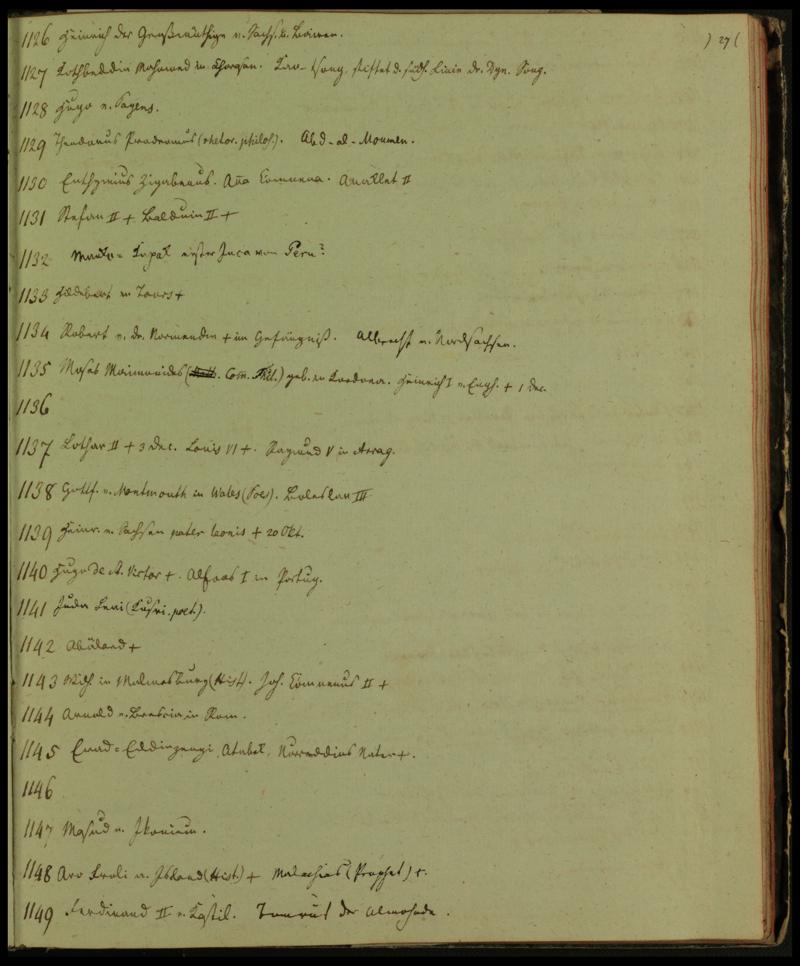 ) 27 (
1126 Heinrich der Großmüthige v. Sachs. u. Baiern.
1127 Kothbeddin Mohamed in Choresm. Kao-tsong, stiftet d. südl. Linie dr. Dyn. Song.
1128 Hugo v. Pagens.
1129 Theodorus Prodromus (rhetor. philos.). Abd-al-Moumen.
1130 Euthymius Zigabenus. Anna Comnena. Anaklet II
1131 Stefan II + Balduin II +
1132 Manko-Kapak erster Inca von Peru?
1133 Hildebert v. Tours +
1134 Robert v. dr. Normandin + im Gefängniß. Albrecht v. Nordsachsen.
1135 Moses Maimonides ( . Com. Phil.) geb. in Kordova. Heinrich I v. Engl. + 1 Dec.
1136
1137 Lothar II + 3 Dec. Louis VI +. Raymund V in Arrag.
1138 Gottf. v. Montmouth in Wales (Poes). Boleslav III
1139 Heinr. v. Sachsen pater leonis + 20 Okt.
1140 Hugo de St. Victor +. Alfons I in Portug.
1141 Juda Levi (Kusri. poet.).
1142 Abälard +
1143 Wilh. in Malmesburg (Hist). Joh. Comnenus II +
1144 Arnold v. Brescia in Rom.
1145 Emad-Eddin Zengi, Atabek, Nurreddins Vater +.
1146
1147 Masud v. Ikonium.
1148 Aro Froli v. Island (Hist.) + Malachias (Prophet) +.
1149 Ferdinand II v. Kastil. der Almohade.